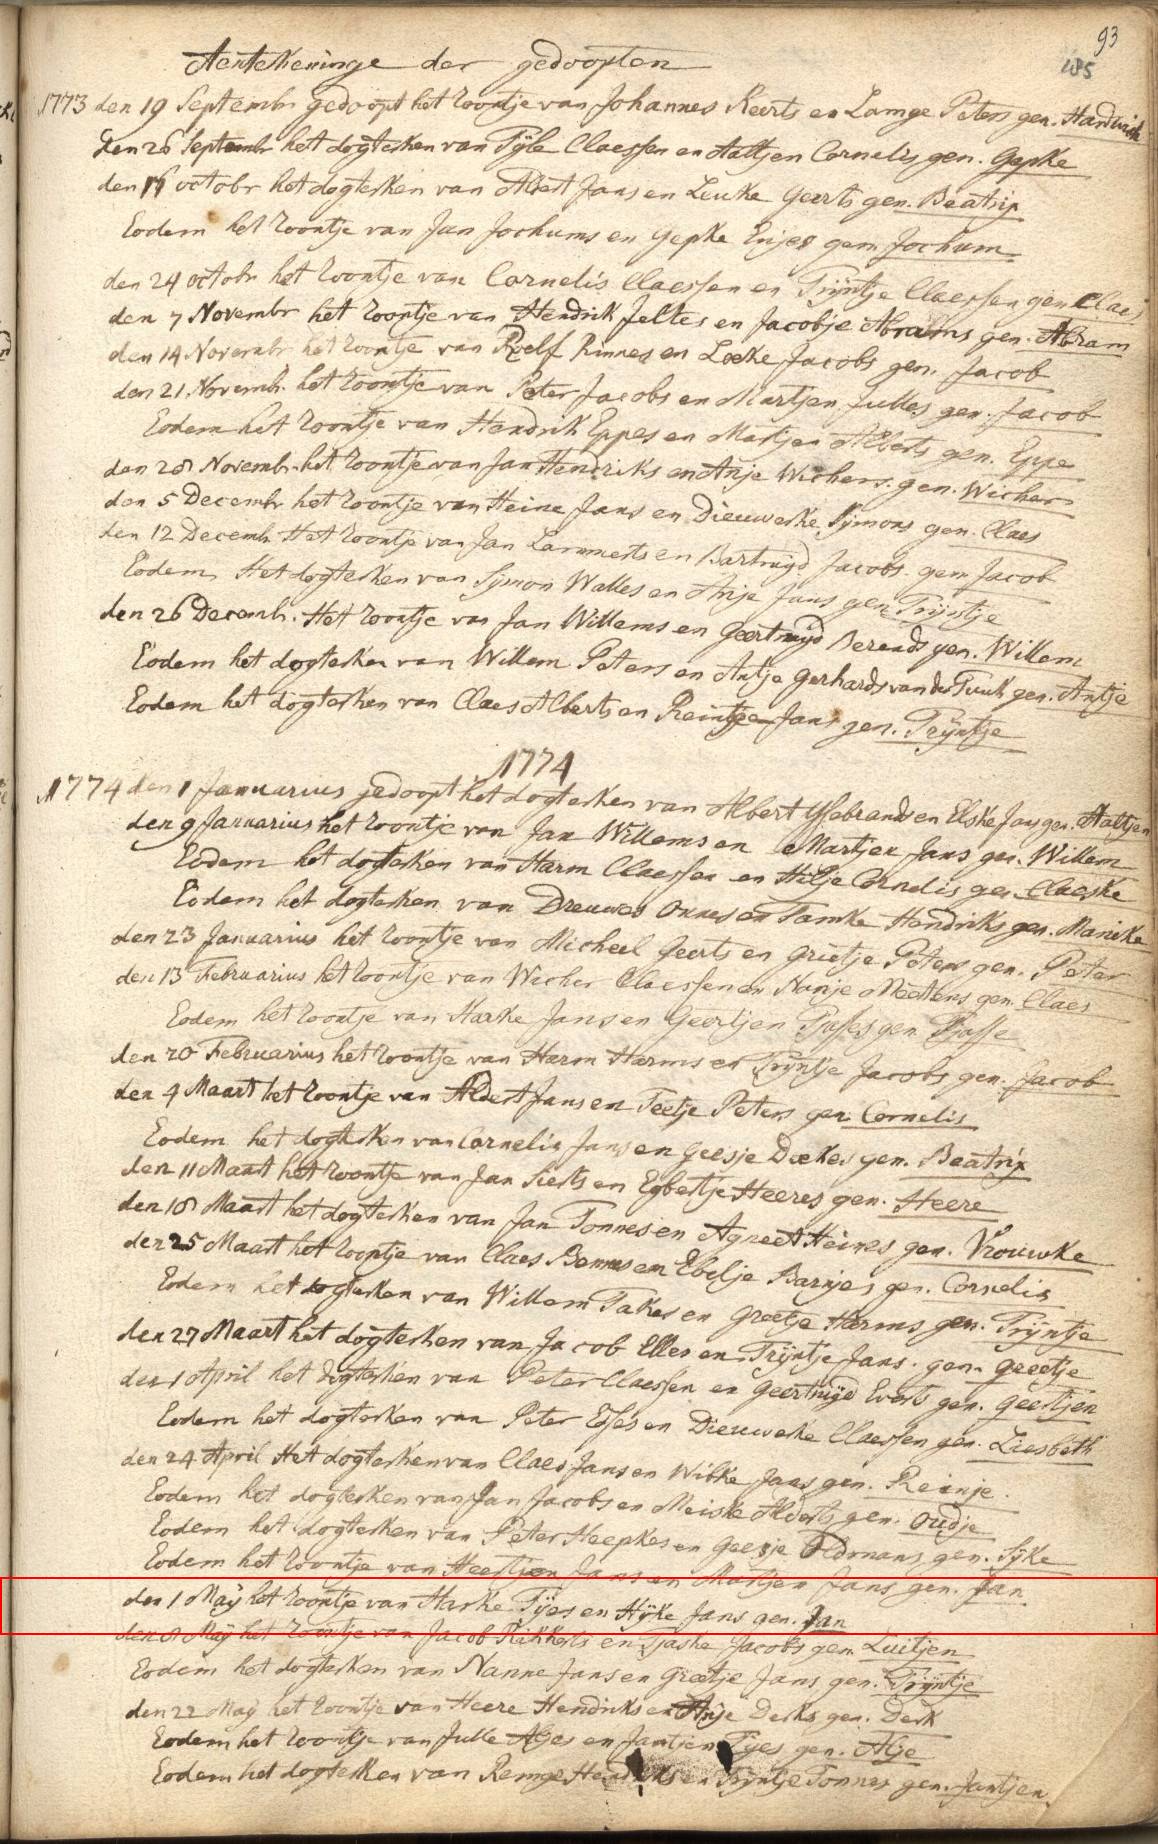 93
185
Aentekeninge der gedoopten
1773 den 19 Septembr gedoopt het zoontje van Johannes Keerts en Lamge Peters gen. Hardwich
den 26 Septembr het dogterken van Tyle Claessen en Aaltjen Cornelis gen. Gepke
den 16 octobr het dogterken van Albert Jans en Leuke Geerts gen. Beatrix
Eodem het zoontje van Jan Jochums en Gepke Enjes gen. Jochum
den 24 octobr het zoontje van Cornelis Claessen en Trÿntje Claessen gen. Claes
den 7 Novembr het zoontje van Hendrik Jeltes en Jacobje Abrams gen. Abram
den 14 Novembr het zoontje van Roelf Rinnes en Loeke Jacobs gen. Jacob
den 21 Novembr. het zoontje van Peter Jacobs en Martjen Julles gen. Jacob
Eodem het zoontje van Hendrik Eppes en Martjen Alberts gen. Eppe
den 28 Novemb. het zoontje van Jan Hendriks en Anje Wichers gen. Wicher
den 5 Decembr het zoontje van Heine Jans en Dieuwerke Symons gen. Claes
den 12 Decemb. Het zoontje van Jan Lammerts en Bartruyd Jacobs gen. Jacob
Eodem Het dogterken van Symon Walles en Anje Jans gen. Trijntje
den 26 Decemb. Het zoontje van Jan Willems en Geertruyd Berends gen. Willem
Eodem het dogterken van Willem Peters en Antje Gerhards van der Tuuk gen. Antje
Eodem het dogterken van Claes Alberts en Reintje Jans gen. Trÿntje
1774
1774 den 1 Januarius gedoopt het dogterken van Albert Ysebrands en Elske Jans gen. Aaltjen
den 9 Januarius het zoontje van Jan Willems en Martjen Jans gen. Willem
Eodem het dogterken van Harm Claessen en Hilje Cornelis gen. Claeske
Eodem het dogterken van Dreuwes Onnes en Tamke Hendriks gen. Maneke
den 23 Januarius het zoontje van Micheel Geerts en Grietje Peters gen. Peter
den 13 Februarius het zoontje van Wicher Claessen en Nanje Meertens gen. Claes
Eodem het zoontje van Harke Jans en Geertjen Tjasses gen. Tjasse
den 20 Februarius het zoontje van Harm Harms en Trÿntje Jacobs gen. Jacob
den 4 Maart het zoontje van Aldert Jans en Teetje Peters gen. Cornelis
Eodem het dogterken van Cornelis Jans en Geesje Doekes gen. Beatrix
den 11 Maart het zoontje van Jan Sierts en Egbertje Heeres gen. Heere
den 18 Maart het dogterken van Jan Tonnes en Agneet Heines gen. Vrouwke
den 25 Maart het zoontje van Claes Bennes en Ebelje Barnjes gen. Cornelis
Eodem het dogterken van Willem Takes en Greetje Harms gen. Trÿntje
den 27 Maart het dogterken van Jacob Elles en Trÿntje Jans. gen. Geertje
den 1 April het dogterken van Peter Claessen en Geertruyd Everts gen. Geertjen
Eodem het dogterken van Peter Esses en Dieuweke Claessen gen. Liesbeth
den 24 April Het dogterken van Claes Jans en Wibke Jans gen. Reinje.
Eodem het dogterken van Jan Jacobs en Meiske Alderts gen. Oudje
Eodem het dogterken van Peter Heepkes en Geesje Oldmans gen. Sÿke
Eodem het zoontje van Heertjen Jans en Martjen Jans gen. Jan
den 1 Maÿ het zoontje van Harke Tÿes en Hÿke Jans gen. Jan
den 8 Maÿ het zoontje van Jacob Rikkerts en Tjaske Jacobs gen. Luitjen
Eodem het dogterken van Nanne Jans en Greetje Jans gen. Trÿntje
den 22 Maÿ het zoontje van Heere Hendriks en Anje Derks gen. Derk
Eodem het zoontje van Julle Aljes en Jantjen Tÿes gen. Alje
Eodem het dogterken van Remge Hendriks en Trÿntje Tonnes gen. Jantjen.